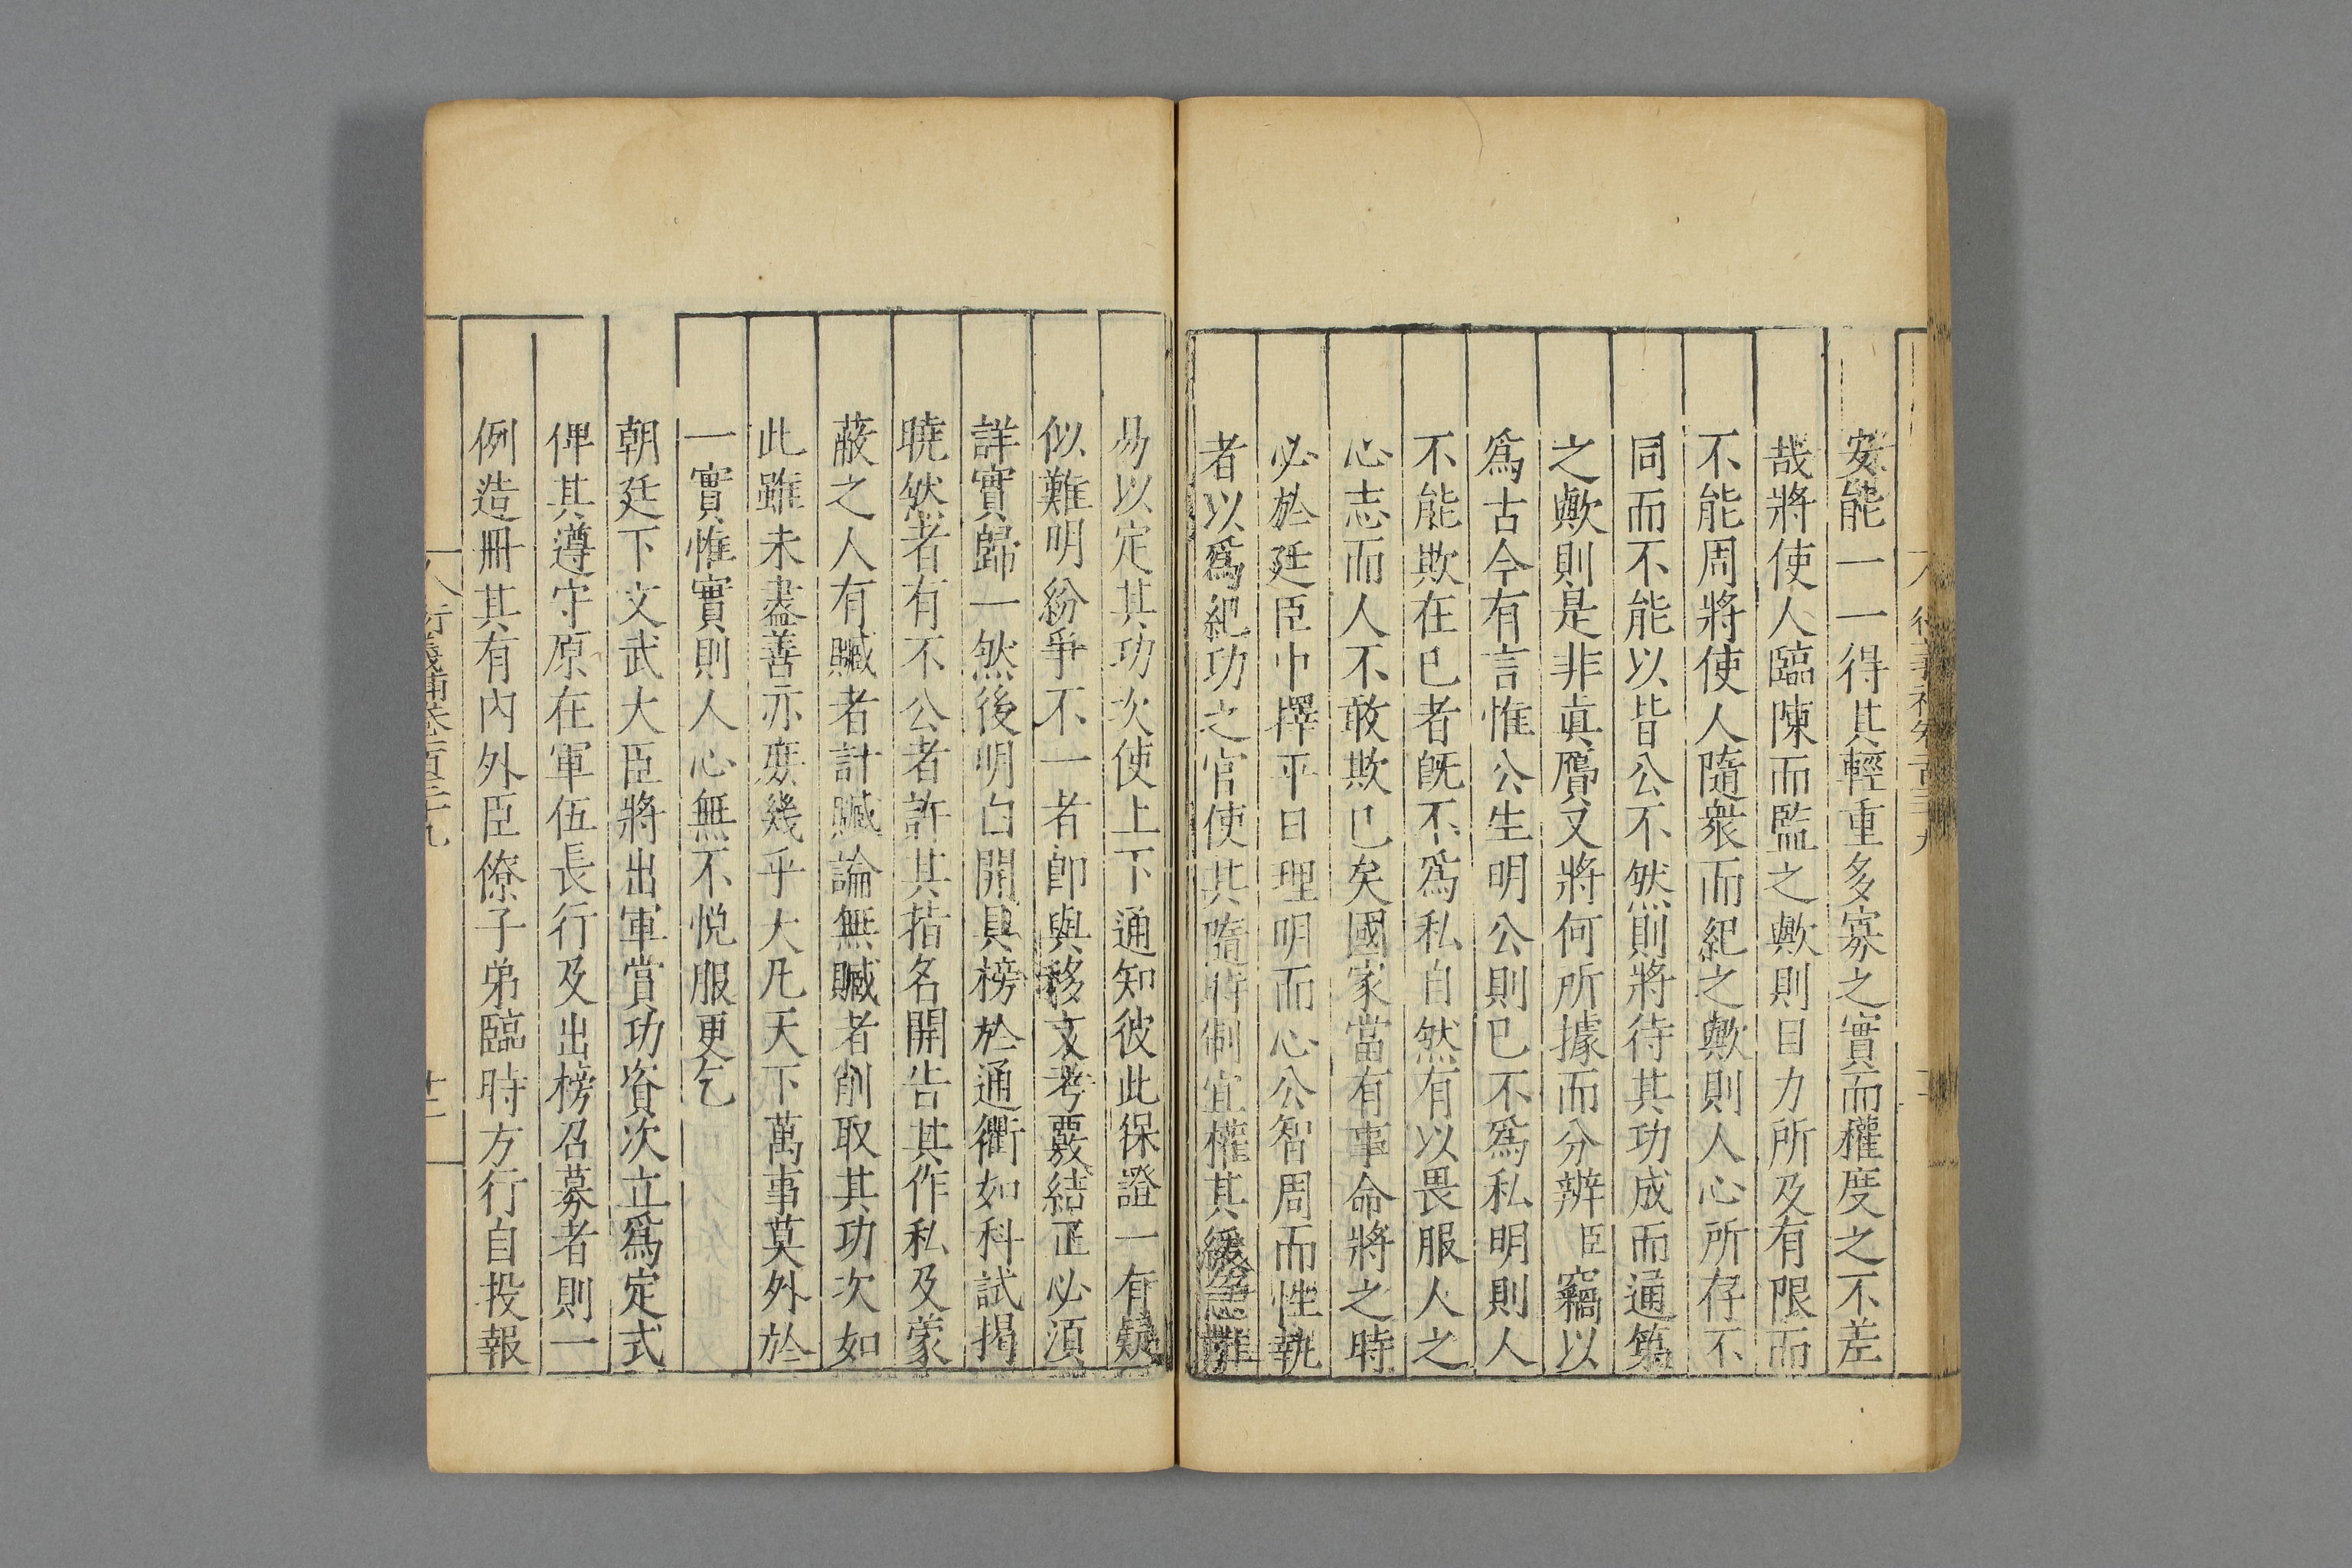 安能一一得其輕重多寡之實而權度之不差
哉將使人臨陳而監之歟則目力所及有限而
不能周將使人隨衆而紀之歟則人心所存不
同而不能以皆公不然則將待其功成而通第
之歟則是非眞贗又將何所據而分辨臣竊以
爲古今有言惟公生明公則已不爲私明則人
不能欺在已者旣不爲私自然有以畏服人之
心志而人不敢欺已矣國家當有事命將之時
必於廷臣中擇平日理明而心公智周而性執
者以爲紀功之官使其隨時制宜權其緩急難
易以定其功次使上下通知彼此保證一有疑
似難明紛爭不一者卽與移文考覈結正必須
詳實歸一然後明白開具榜於通衢如科試揭
曉然者有不公者許其指名開告其作私及蒙
蔽之人有贓者計贓論無贓者削取其功次如
此雖未盡善亦庶幾乎大凡天下萬事莫外於
一實惟實則人心無不悅服更乞
朝廷下文武大臣將出軍賞功資次立爲定式
俾其遵守原在軍伍長行及出榜召募者則一
例造冊其有內外臣僚子弟臨時方行自投報
衍義補卷一百三十九